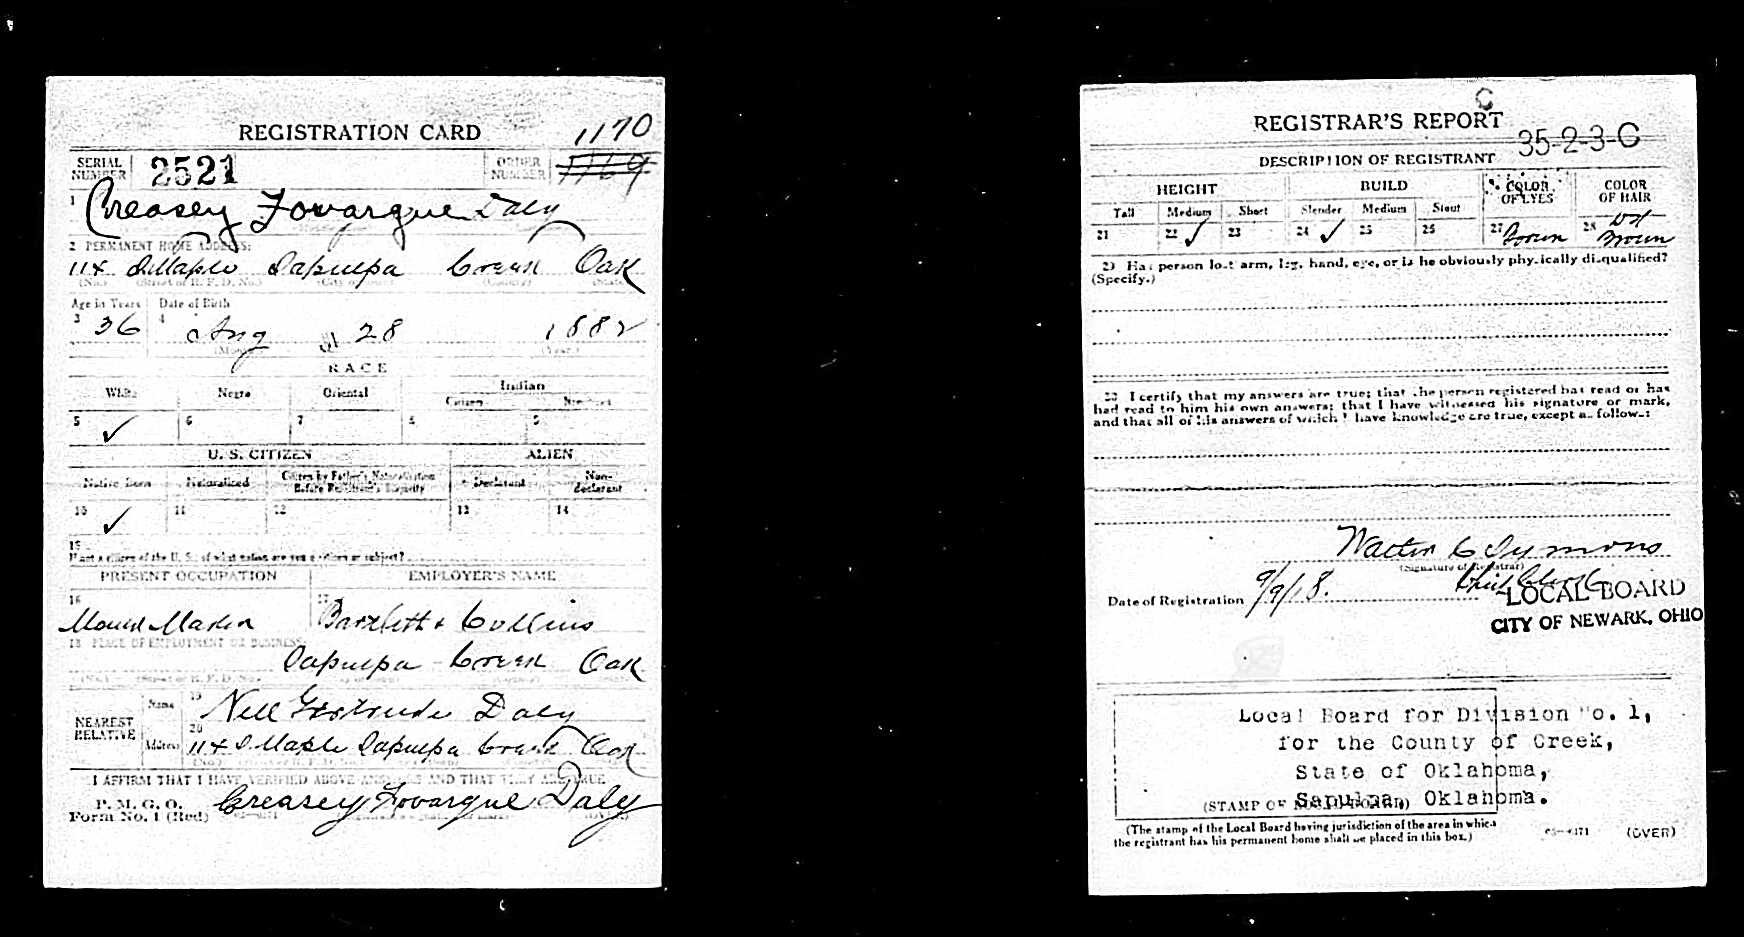 REGISTRATION CARD
1170
SERIAL NUMBER 2521 ORDER NUMBER 1169
1 Creasey Fovargue Daly
2 PERMANENT HOME ADDRESS:
114 S Maple Sapulpa Creek Oak
(No.) (Street or R. F. D. No.) (City or town) (County) (State)
Age in Years Date of Birth
3 36 4 Aug 28 1882
(Month) (Year)
RACE
White Negro Oriental Indian
Citizen
5 ✓ 6 7 8 9
U. S. CITIZEN ALIEN
Native Born Naturalized Citizen by Father's Naturalization Before Registrant's Majority Declarant Non-declarant
10 ✓ 11 12 13 14
15
If not a citizen of the U. S., of what nation are you a citizen or subject?
PRESENT OCCUPATION EMPLOYER'S NAME
16 17
Mould Maker Bartlett & Collins
18 PLACE OF EMPLOYMENT OR BUSINESS:
Sapulpa Creek Oak
(No.) (Street or R. F. D. No.) (County) (State)
NEAREST RELATIVE
Name 19 Nell Gertrude Daly
Address 20 114 S Maple Sapulpa Creek Oak
I AFFIRM THAT I HAVE VERIFIED ABOVE ANSWERS AND THAT THEY ARE TRUE
P. M. G. O.
Form No. 1 (Red) Creasey Fovargue Daly
C
REGISTRAR'S REPORT
35-2-3-C
DESCRIPTION OF REGISTRANT
HEIGHT BUILD COLOR OF EYES COLOR OF HAIR
Tall Medium Short Slender Medium Stout
21 22 ✓ 23 24 ✓ 25 26 27 Brown 28 Brown
29 Has person lost arm, leg, hand, eye, or is he obviously physically disqualified?
(Specify.)
30 I certify that my answers are true; that the person registered has read or has
had read to him his own answers; that I have witnessed his signature or mark,
and that all of his answers of which I have knowledge are true, except as follows:
Walter C Symons
(Signature of Registrar)
Date of Registration 9/9/18. Chief Clerk
LOCAL BOARD
CITY OF NEWARK, OHIO
Local Board for Division No. 1,
for the County of Creek,
State of Oklahoma,
Sapulpa, Oklahoma.
(STAMP OF LOCAL BOARD)
(The stamp of the Local Board having jurisdiction of the area in which
the registrant has his permanent home shall be placed in this box.)
(OVER)